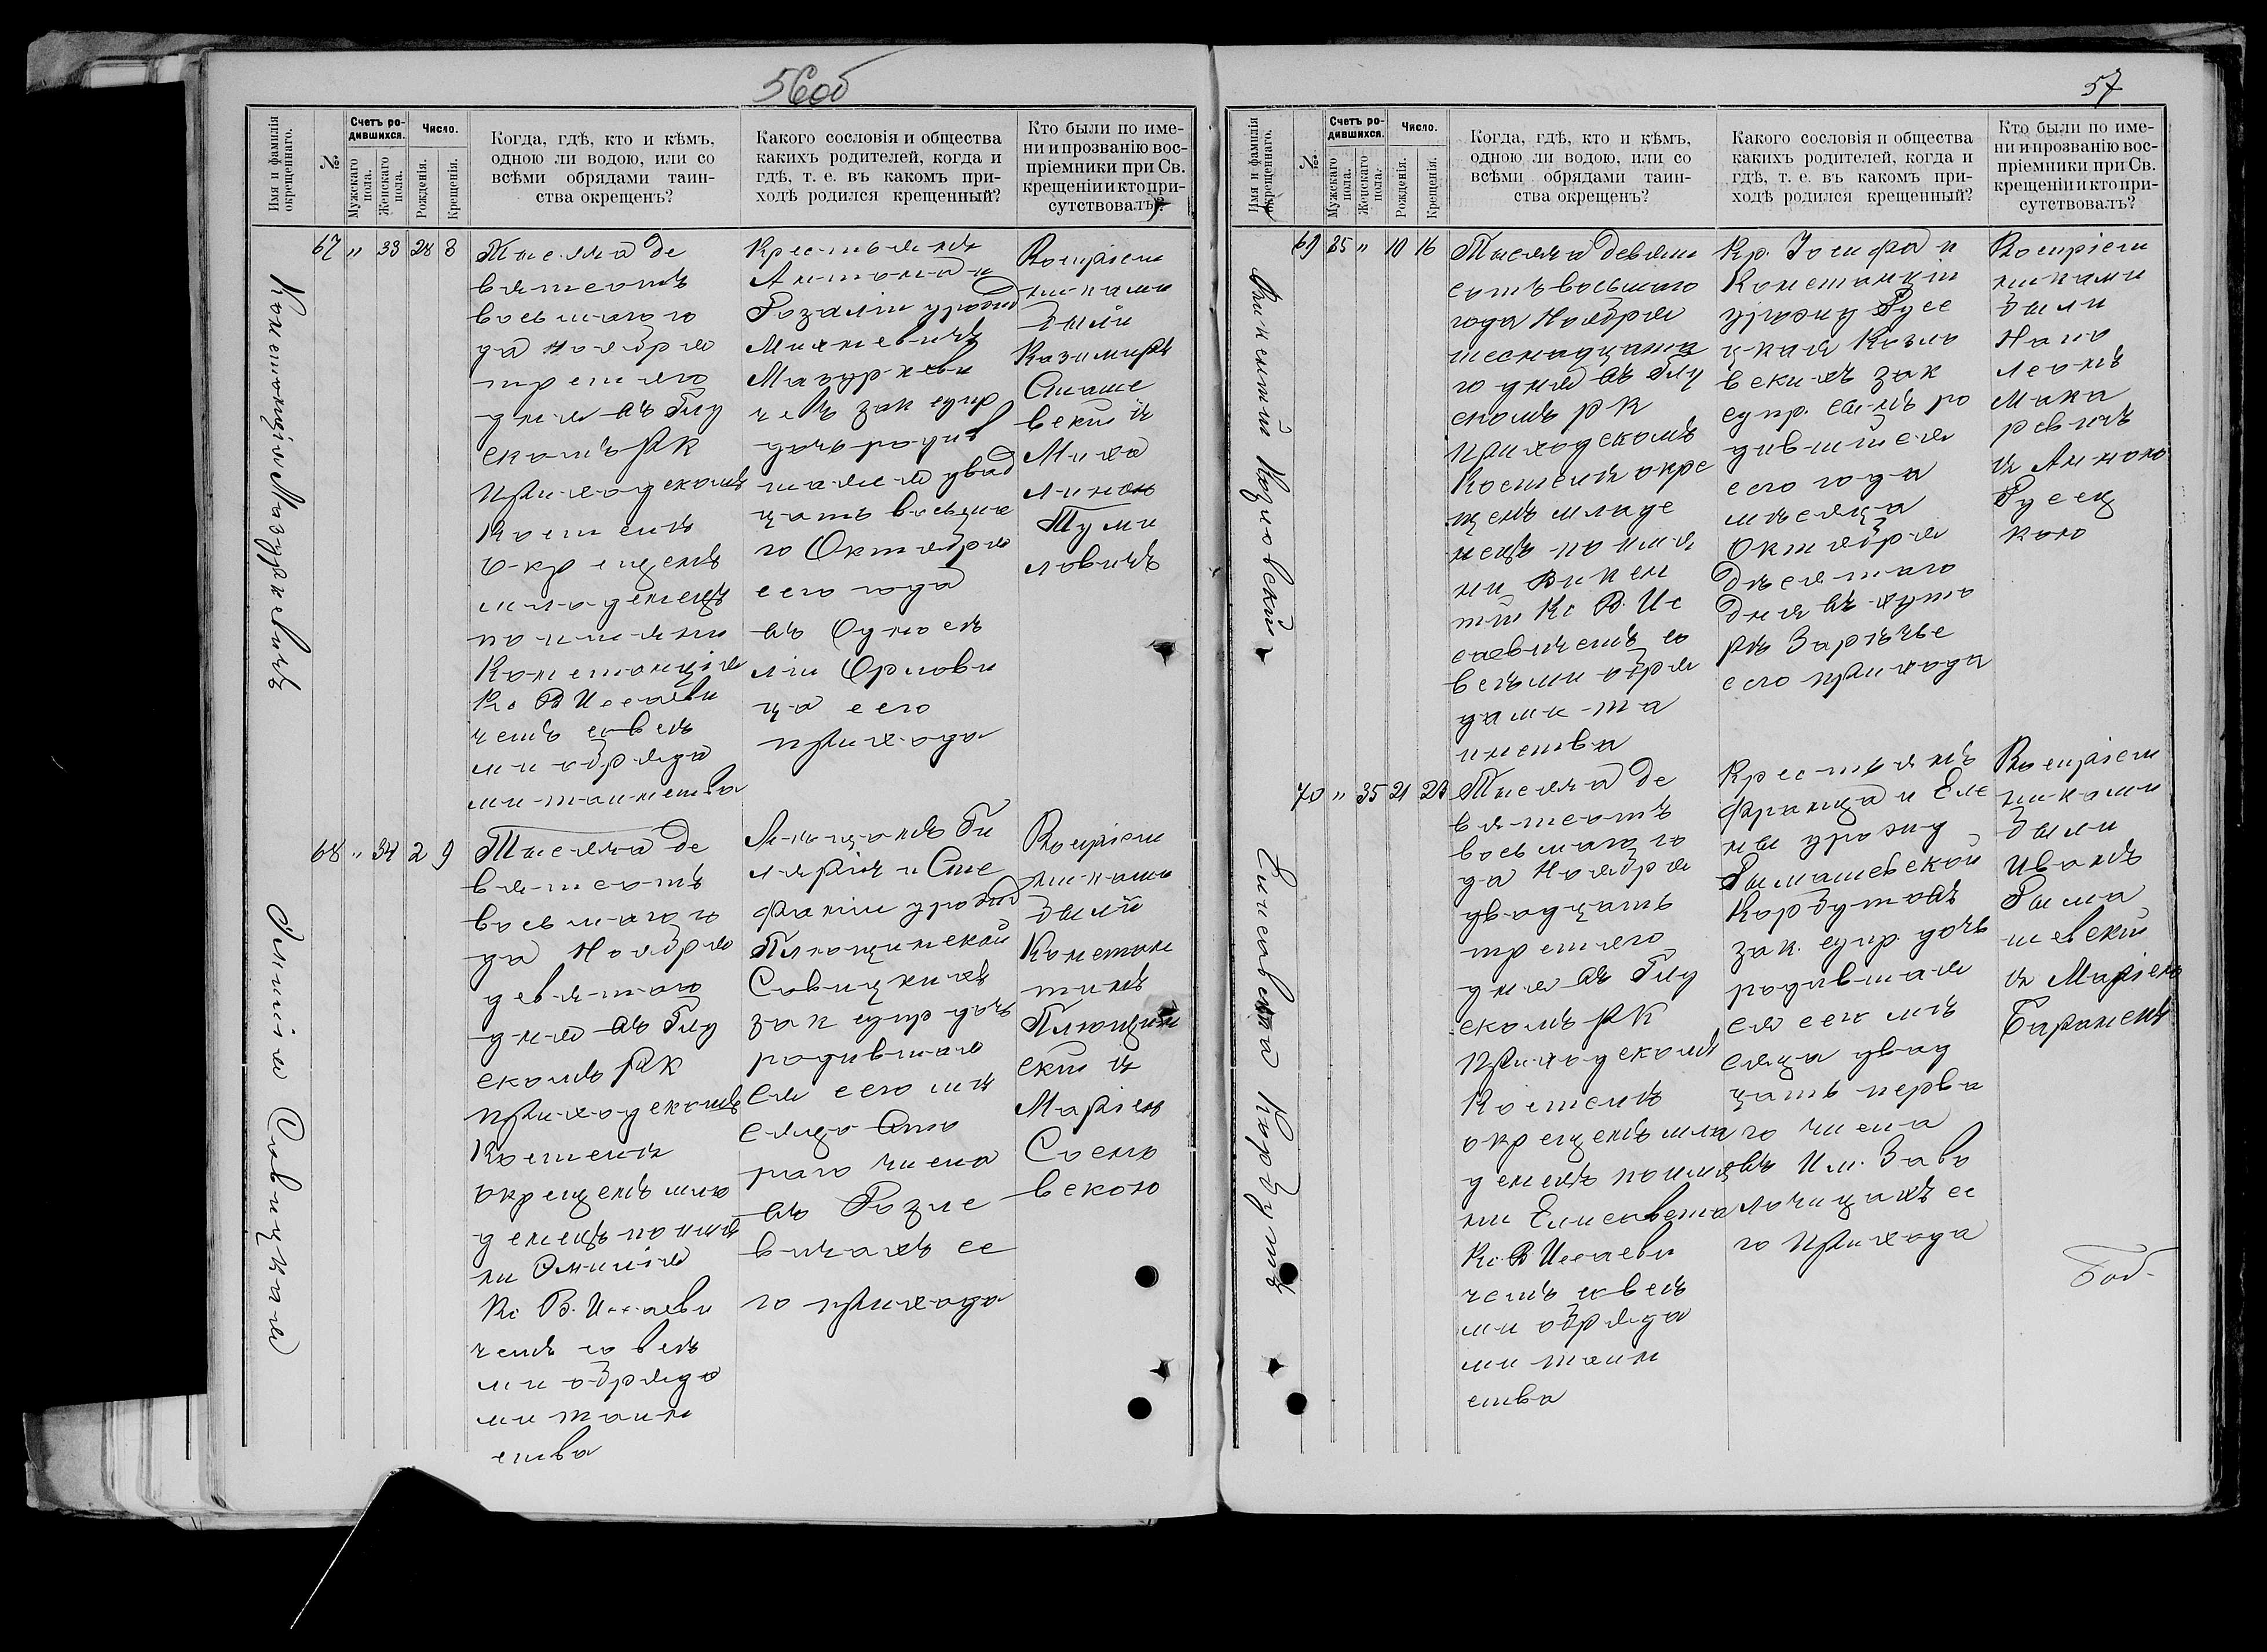 56об
Имя и фамилія окрещеннаго.
№
Счетъ ро-
дившихся.
Мужскаго пола.
Женскаго пола.
Число.
Рожденія.
Крещенія.
Когда, гдѣ, кто и кѣмъ,
одною ли водою, или со
всѣми обрядами таин-
ства окрещенъ?
Какого сословія и общества
какихъ родителей, когда и
гдѣ, т. е. въ какомъ при-
ходѣ родился крещенный?
Кто были по име-
ни и прозванію вос-
пріемники при Св.
крещеніи и кто при-
сутствовалъ?
Констанція Мазуркевичъ
67 " 33 28 8
Тысяча де
вятьсотъ
восьмаго го
да Ноября
третяго
дня въ Глу
скомъ РК
Приходскомъ
Костелѣ
окрещенъ
младенецъ
по имяни
Констанція
Кс В Иссаеви
чемъ со всѣ
ми обряда
ми таинства
Крестьянъ
Антона и
Розаліи урожд
Михневичъ
Мазуркеви
чей зак супр
дочь родив
шаяся двад
цать восьма
го Октября
сего года
въ
Орлови
ца сего
прихода
Воспріем
никами
были
Казимиръ
Сташе
вскій и
Миха
линою
Туми
ловичъ
Эмилія Савицкая
68 " 34 2 9
Тысяча де
вятьсотъ
восьмаго го
да Ноября
девятаго
дня въ Глу
скомъ РК
приходскомъ
Костелѣ
окрещенъ мла
денецъ по имя
ни Эмилія
Кс В. Иссаеви
чемъ со всѣ
ми обряда
ми таин
ства
Мѣщанъ Ги
лярія и Сте
фаніи урожд
Плющинской
Савицкихъ
зак супр дочь
родившая
ся сего мѣ
сяца вто
раго числа
въ Розле
вичахъ се
го прихода
Воспріем
никами
были
Констан
тинъ
Плющин
скій и
Маріею
Сосно
вскою
57
Имя и фамилія окрещеннаго.
№
Счетъ ро-
дившихся.
Мужскаго пола.
Женскаго пола.
Число.
Рожденія.
Крещенія.
Когда, гдѣ, кто и кѣмъ,
одною ли водою, или со
всѣми обрядами таин-
ства окрещенъ?
Какого сословія и общества
какихъ родителей, когда и
гдѣ, т. е. въ какомъ при-
ходѣ родился крещенный?
Кто были по име-
ни и прозванію вос-
пріемники при Св.
крещеніи и кто при-
сутствовалъ?
Викентій Козловскій
69 35 " 10 16
Тысяча девять
сотъ восьмаго
года Ноября
шеснадцата
го дня въ Глу
скомъ РК
Приходскомъ
Костелѣ окре
щенъ младе
нецъ по имя
ни Викен
тій Кс В. Ис
саевичемъ со
всѣми обря
дами та
инства
Кр. Іосифа и
Констанціи
урожд Русе
цкая Козло
вскихъ зак
супр. сынъ ро
дившийся
сего года
мѣсяца
Октября
Десятаго
Дня въ хуто
рѣ Зарѣчье
сего прихода
Воспріем
никами
были
Напо
леонъ
Мака
ревичъ
и Анною
Русец
кою
Елисавета Корбутъ
70 " 35 21 23
Тысяча де
вятьсотъ
восьмаго го
да Ноября
двадцать
третяго
дня въ Глу
скомъ РК
Приходскомъ
Костелѣ
окрещенъ мла
денецъ по имя
ни Елисавета
Кс В Иссаеви
чемъ со всѣ
ми обряда
ми таин
ства
Крестьянъ
Франца и Еле
ны урожд
Рымашевской
Корбутовъ
зак. супр. дочь
родившая
ся сего мѣ
сяца двад
цать перва
го числа
въ Им. Заво
лочицахъ се
го прихода
Воспріем
никами
были
Иванъ
Рыма
шевскій
и Маріею
Баранецъ